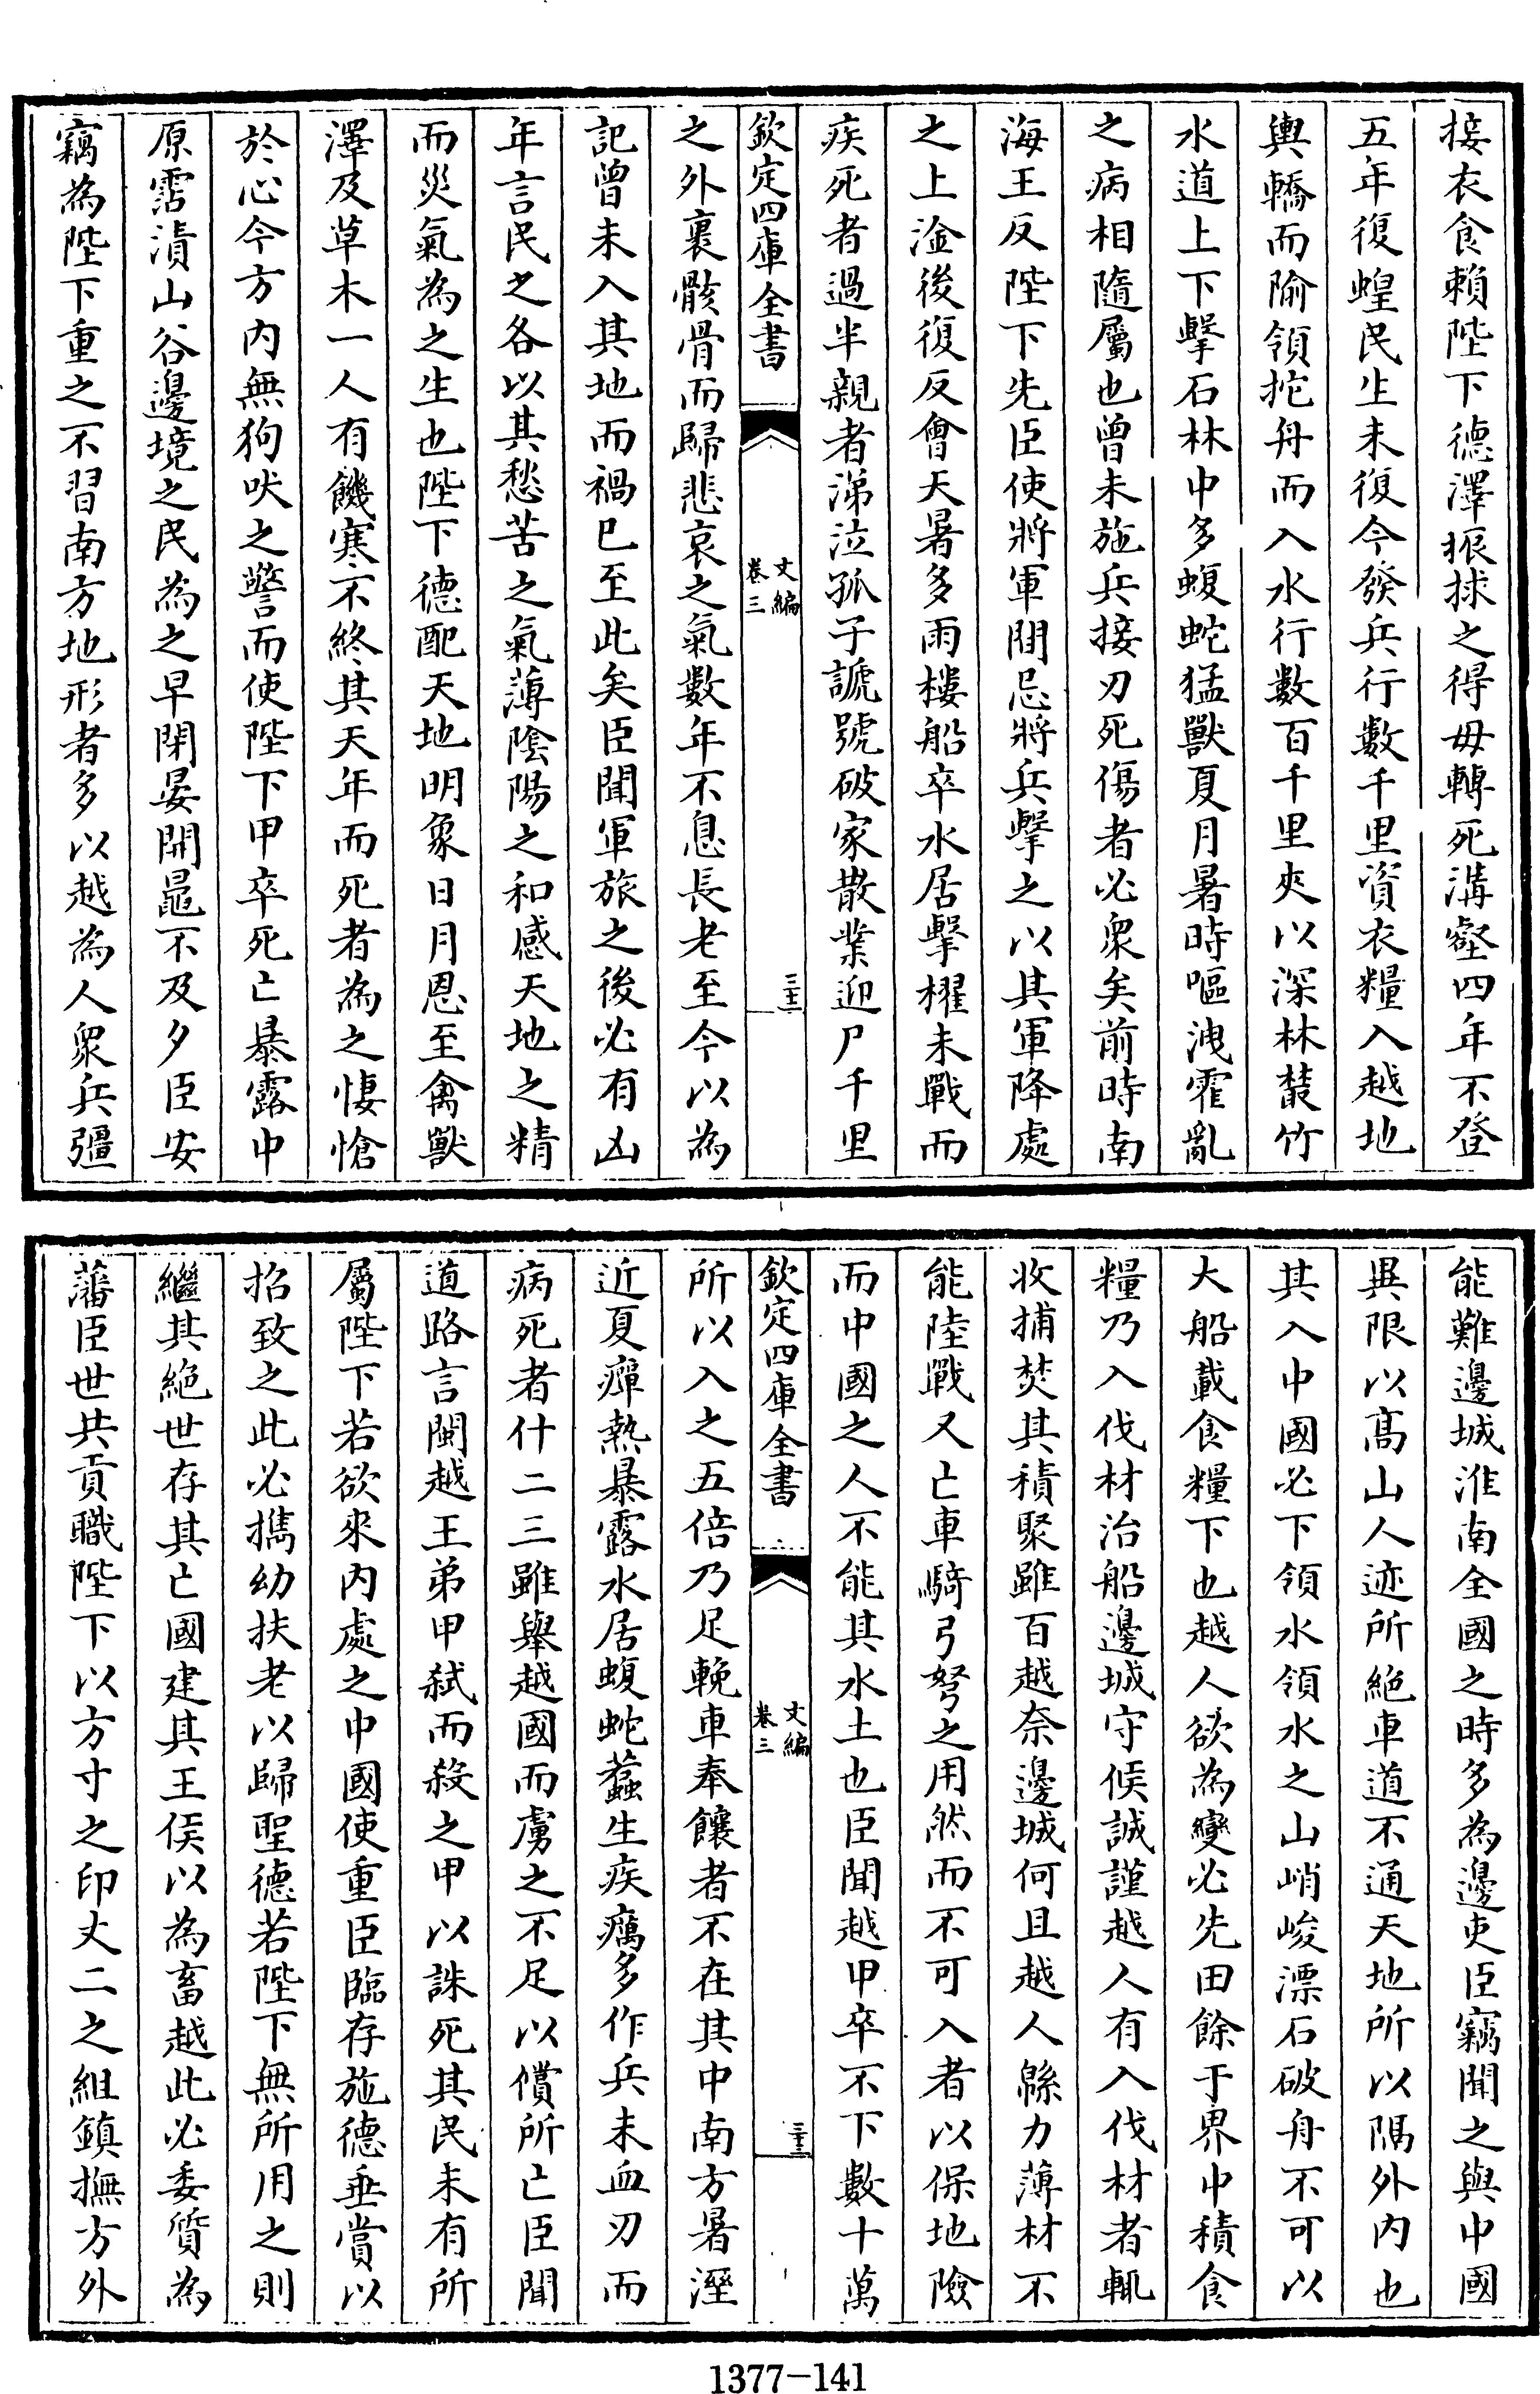 接衣食賴陛下德澤振捄之得毋轉死溝壑四年不登
五年復蝗民生未復今發兵行數千里資衣糧入越地
輿轎而隃領拕舟而入水行數百千里夾以深林叢竹
水道上下擊石林中多蝮蛇猛獸夏月暑時嘔洩霍亂
之病相隨屬也曾未施兵接刃死傷者必衆矣前時南
海王反陛下先臣使將軍間忌將兵擊之以其軍降處
之上淦後復反會天暑多雨樓船卒水居擊櫂未戰而
疾死者過半親者涕泣孤子謕號破家散業迎尸千里
欽定四庫全書 文編 卷三 三十二
之外裹骸骨而歸悲哀之氣數年不息長老至今以為
記曾未入其地而禍已至此矣臣聞軍旅之後必有凶
年言民之各以其愁苦之氣薄陰陽之和感天地之精
而災氣為之生也陛下德配天地明象日月恩至禽獸
澤及草木一人有饑寒不終其天年而死者為之悽愴
於心今方內無狗吠之警而使陛下甲卒死亡暴露中
原霑漬山谷邊境之民為之早閉晏開鼂不及夕臣安
竊為陛下重之不習南方地形者多以越為人衆兵彊
能難邊城淮南全國之時多為邊吏臣竊聞之與中國
異限以髙山人迹所絶車道不通天地所以隔外內也
其入中國必下領水領水之山峭峻漂石破舟不可以
大船載食糧下也越人欲為變必先田餘于界中積食
糧乃入伐材治船邊城守候誠謹越人有入伐材者輒
收捕焚其積聚雖百越奈邊城何且越人緜力薄材不
能陸戰又亡車騎弓弩之用然而不可入者以保地險
而中國之人不能其水土也臣聞越甲卒不下數十萬
欽定四庫全書 文編 卷三 三十三
所以入之五倍乃足輓車奉饟者不在其中南方暑溼
近夏癉熱暴露水居蝮蛇蠚生疾癘多作兵未血刃而
病死者什二三雖舉越國而虜之不足以償所亡臣聞
道路言閩越王弟甲弒而殺之甲以誅死其民未有所
屬陛下若欲來內處之中國使重臣臨存施德垂賞以
招致之此必攜幼扶老以歸聖德若陛下無所用之則
繼其絶世存其亡國建其王侯以為畜越此必委質為
藩臣世共貢職陛下以方寸之印丈二之組鎮撫方外
1377-141